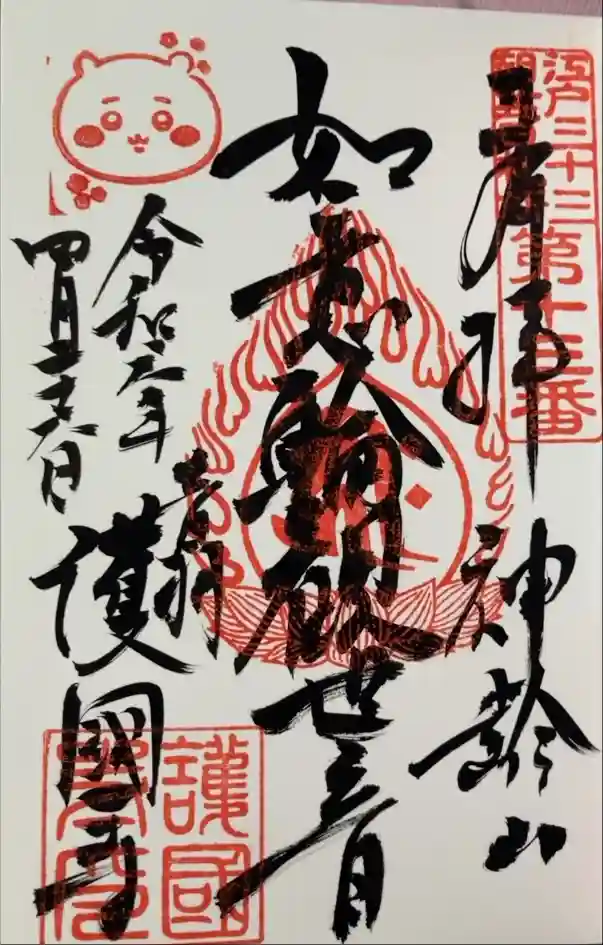 江戸三十三
第十三番
奉拝
神齢山
如意輪観世音
令和六年
四月二十六日
音羽
護國寺
護國